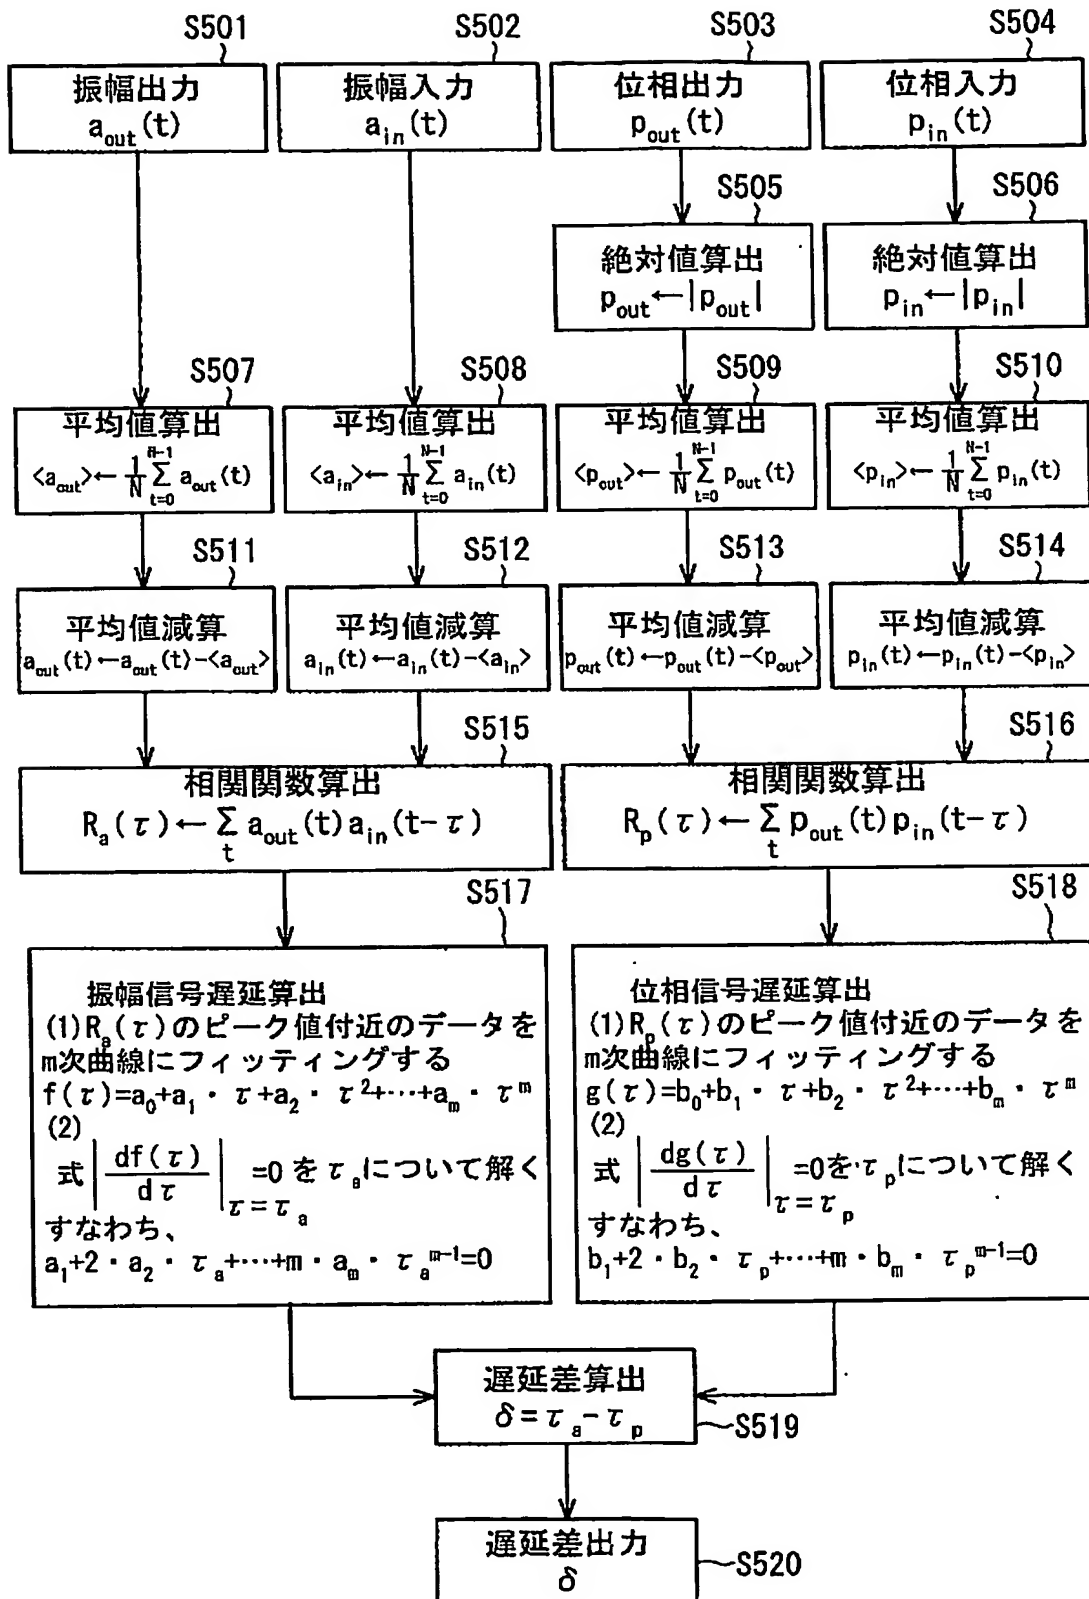 S501
振幅出力
a_out(t)
S502
振幅入力
a_in(t)
S503
位相出力
p_out(t)
S504
位相入力
p_in(t)
S505
絶対値算出
p_out←|p_out|
S506
絶対値算出
p_in←|p_in|
S507
平均値算出
<a_out>←1/N Σ_{t=0}^{N-1} a_out(t)
S508
平均値算出
<a_in>←1/N Σ_{t=0}^{N-1} a_in(t)
S509
平均値算出
<p_out>←1/N Σ_{t=0}^{N-1} p_out(t)
S510
平均値算出
<p_in>←1/N Σ_{t=0}^{N-1} p_in(t)
S511
平均値減算
a_out(t)←a_out(t)-<a_out>
S512
平均値減算
a_in(t)←a_in(t)-<a_in>
S513
平均値減算
p_out(t)←p_out(t)-<p_out>
S514
平均値減算
p_in(t)←p_in(t)-<p_in>
S515
相関関数算出
R_a(τ)←Σ_t a_out(t)a_in(t-τ)
S516
相関関数算出
R_p(τ)←Σ_t p_out(t)p_in(t-τ)
S517
振幅信号遅延算出
(1)R_a(τ)のピーク値付近のデータを
m次曲線にフィッティングする
f(τ)=a_0+a_1・τ+a_2・τ^2+…+a_m・τ^m
(2)
式|df(τ)/dτ|_{τ=τ_a}=0をτ_aについて解く
すなわち、
a_1+2・a_2・τ_a+…+m・a_m・τ_a^{m-1}=0
S518
位相信号遅延算出
(1)R_p(τ)のピーク値付近のデータを
m次曲線にフィッティングする
g(τ)=b_0+b_1・τ+b_2・τ^2+…+b_m・τ^m
(2)
式|dg(τ)/dτ|_{τ=τ_p}=0をτ_pについて解く
すなわち、
b_1+2・b_2・τ_p+…+m・b_m・τ_p^{m-1}=0
遅延差算出
δ=τ_a-τ_p
S519
遅延差出力
δ
S520